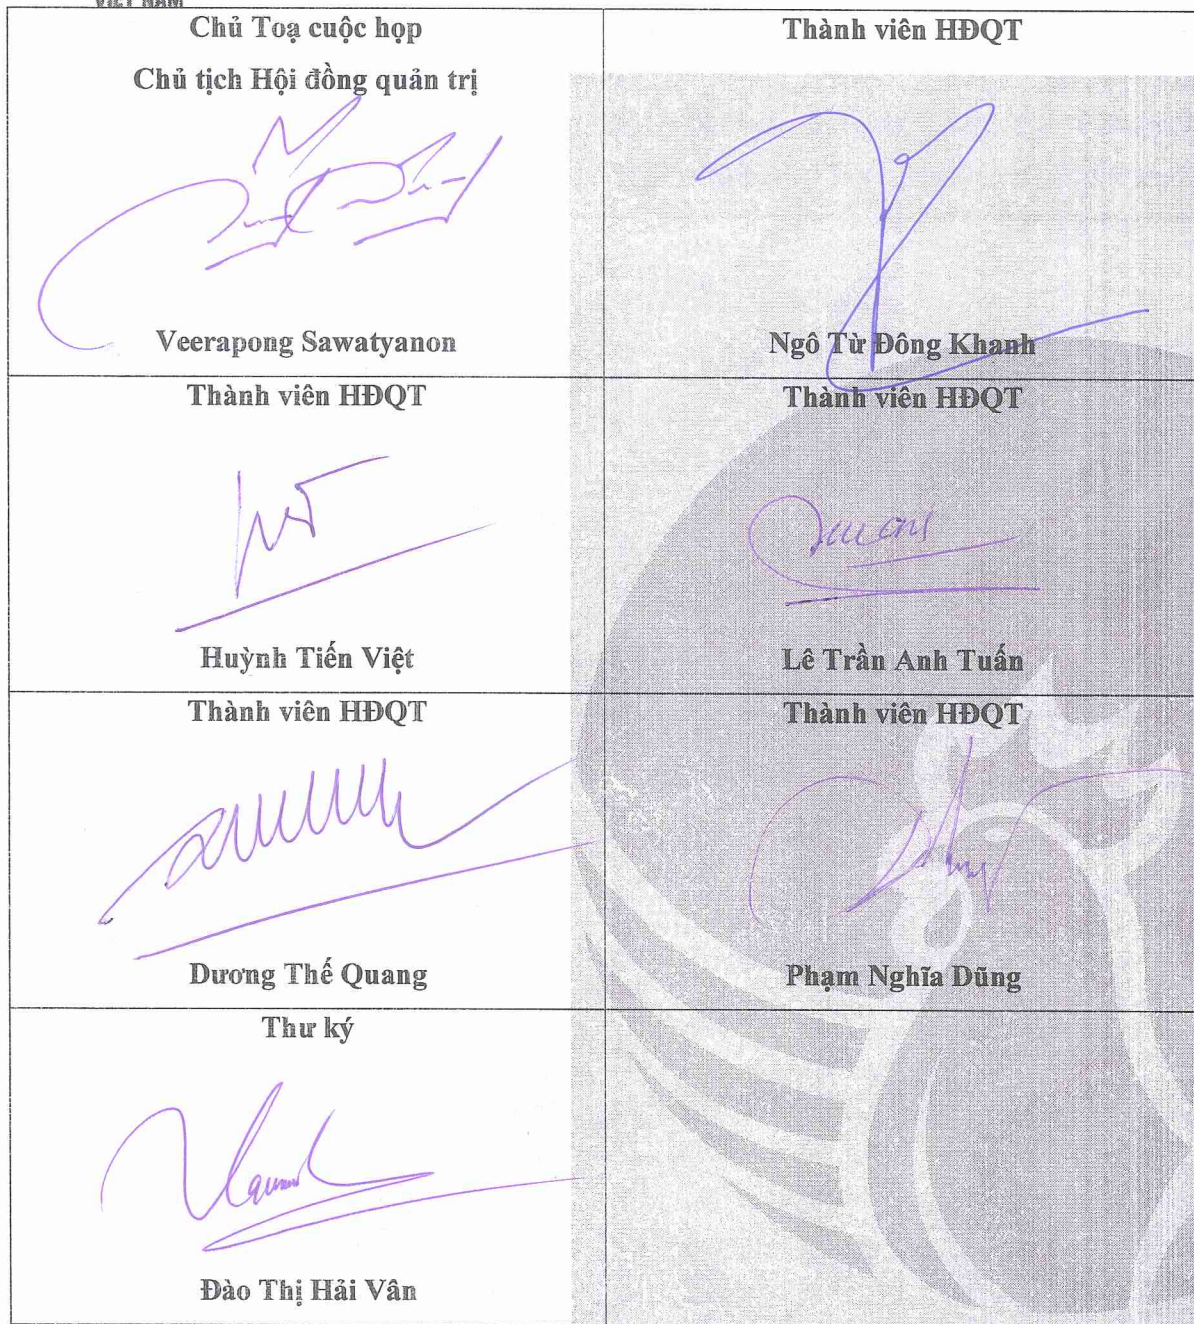 VIỆT NAM
Chủ Toạ cuộc họp
Chủ tịch Hội đồng quản trị
Veerapong Sawatyanon
Thành viên HĐQT
Ngô Từ Đông Khanh
Thành viên HĐQT
Huỳnh Tiến Việt
Thành viên HĐQT
Lê Trần Anh Tuấn
Thành viên HĐQT
Dương Thế Quang
Thành viên HĐQT
Phạm Nghĩa Dũng
Thư ký
Đào Thị Hải Vân